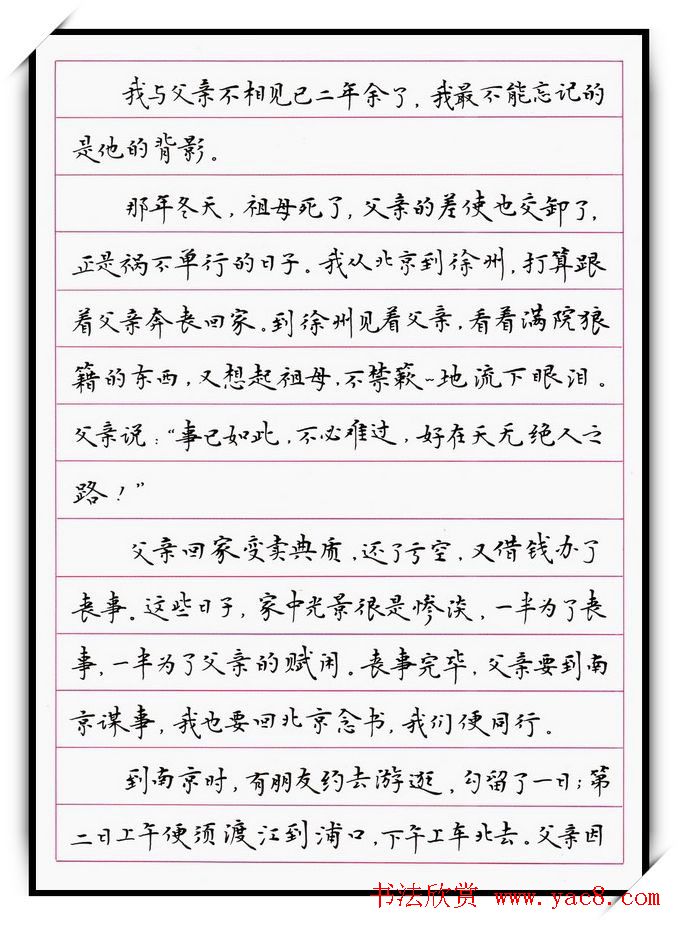 我与父亲不相见已二年余了，我最不能忘记的
是他的背影。
那年冬天，祖母死了，父亲的差使也交卸了，
正是祸不单行的日子。我从北京到徐州，打算跟
着父亲奔丧回家。到徐州见着父亲，看着满院狼
籍的东西，又想起祖母，不禁簌~地流下眼泪。
父亲说：“事已如此，不必难过，好在天无绝人之
路！”
父亲回家变卖典质，还了亏空，又借钱办了
丧事。这些日子，家中光景很是惨淡，一半为了丧
事，一半为了父亲的赋闲。丧事完毕，父亲要到南
京谋事，我也要回北京念书，我们便同行。
到南京时，有朋友约去游逛，勾留了一日；第
二日上午便须渡江到浦口，下午上车北去。父亲因
书法欣赏 www.yac8.com